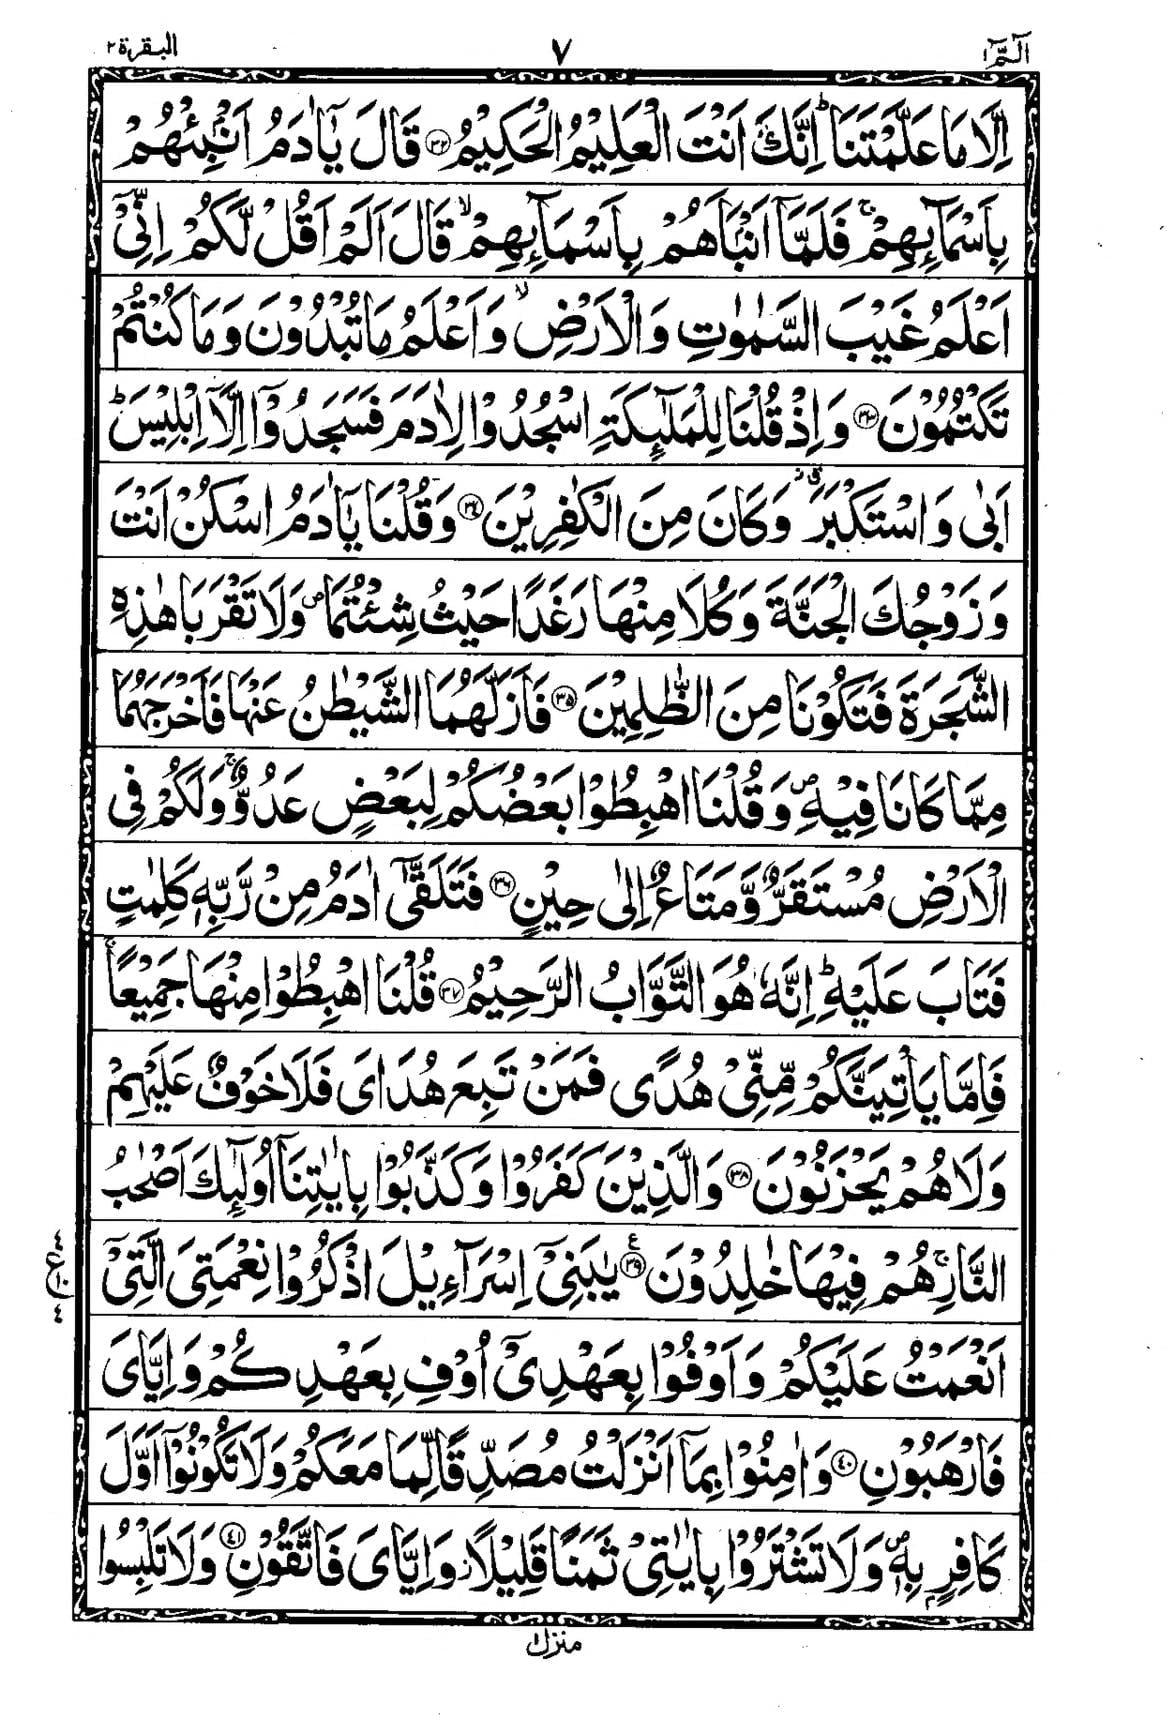 الٓمّٓ ١
٧
البقرة ٢
اِلَّا مَا عَلَّمْتَنَا ؕ اِنَّكَ اَنْتَ الْعَلِیْمُ الْحَكِیْمُ ﴿۳۲﴾ قَالَ یٰۤاٰدَمُ اَنْۢبِئْهُمْ
بِاَسْمَآئِهِمْ ۚ فَلَمَّاۤ اَنْۢبَاَهُمْ بِاَسْمَآئِهِمْ ۙ قَالَ اَلَمْ اَقُلْ لَّكُمْ اِنِّیْۤ
اَعْلَمُ غَیْبَ السَّمٰوٰتِ وَالْاَرْضِ ۙ وَاَعْلَمُ مَا تُبْدُوْنَ وَمَا كُنْتُمْ
تَكْتُمُوْنَ ﴿۳۳﴾ وَاِذْ قُلْنَا لِلْمَلٰٓئِكَةِ اسْجُدُوْا لِاٰدَمَ فَسَجَدُوْۤا اِلَّاۤ اِبْلِیْسَ ؕ
اَبٰی وَاسْتَكْبَرَ ٭۫ وَكَانَ مِنَ الْكٰفِرِیْنَ ﴿۳۴﴾ وَقُلْنَا یٰۤاٰدَمُ اسْكُنْ اَنْتَ
وَزَوْجُكَ الْجَنَّةَ وَكُلَا مِنْهَا رَغَدًا حَیْثُ شِئْتُمَا ۪ وَلَا تَقْرَبَا هٰذِهِ
الشَّجَرَةَ فَتَكُوْنَا مِنَ الظّٰلِمِیْنَ ﴿۳۵﴾ فَاَزَلَّهُمَا الشَّیْطٰنُ عَنْهَا فَاَخْرَجَهُمَا
مِمَّا كَانَا فِیْهِ ۪ وَقُلْنَا اهْبِطُوْا بَعْضُكُمْ لِبَعْضٍ عَدُوٌّ ۚ وَلَكُمْ فِی
الْاَرْضِ مُسْتَقَرٌّ وَّمَتَاعٌ اِلٰی حِیْنٍ ﴿۳۶﴾ فَتَلَقّٰۤی اٰدَمُ مِنْ رَّبِّهٖ كَلِمٰتٍ
فَتَابَ عَلَیْهِ ؕ اِنَّهٗ هُوَ التَّوَّابُ الرَّحِیْمُ ﴿۳۷﴾ قُلْنَا اهْبِطُوْا مِنْهَا جَمِیْعًا ۚ
فَاِمَّا یَاْتِیَنَّكُمْ مِّنِّیْ هُدًی فَمَنْ تَبِعَ هُدَایَ فَلَا خَوْفٌ عَلَیْهِمْ
وَلَا هُمْ یَحْزَنُوْنَ ﴿۳۸﴾ وَالَّذِیْنَ كَفَرُوْا وَكَذَّبُوْا بِاٰیٰتِنَاۤ اُولٰٓئِكَ اَصْحٰبُ
النَّارِ ۚ هُمْ فِیْهَا خٰلِدُوْنَ ﴿۳۹﴾ یٰبَنِیْۤ اِسْرَآءِیْلَ اذْكُرُوْا نِعْمَتِیَ الَّتِیْۤ
اَنْعَمْتُ عَلَیْكُمْ وَاَوْفُوْا بِعَهْدِیْۤ اُوْفِ بِعَهْدِكُمْ وَاِیَّایَ
فَارْهَبُوْنِ ﴿۴۰﴾ وَاٰمِنُوْا بِمَاۤ اَنْزَلْتُ مُصَدِّقًا لِّمَا مَعَكُمْ وَلَا تَكُوْنُوْۤا اَوَّلَ
كَافِرٍۭ بِهٖ ۪ وَلَا تَشْتَرُوْا بِاٰیٰتِیْ ثَمَنًا قَلِیْلًا ۫ وَّاِیَّایَ فَاتَّقُوْنِ ﴿۴۱﴾ وَلَا تَلْبِسُوا
منزل ١